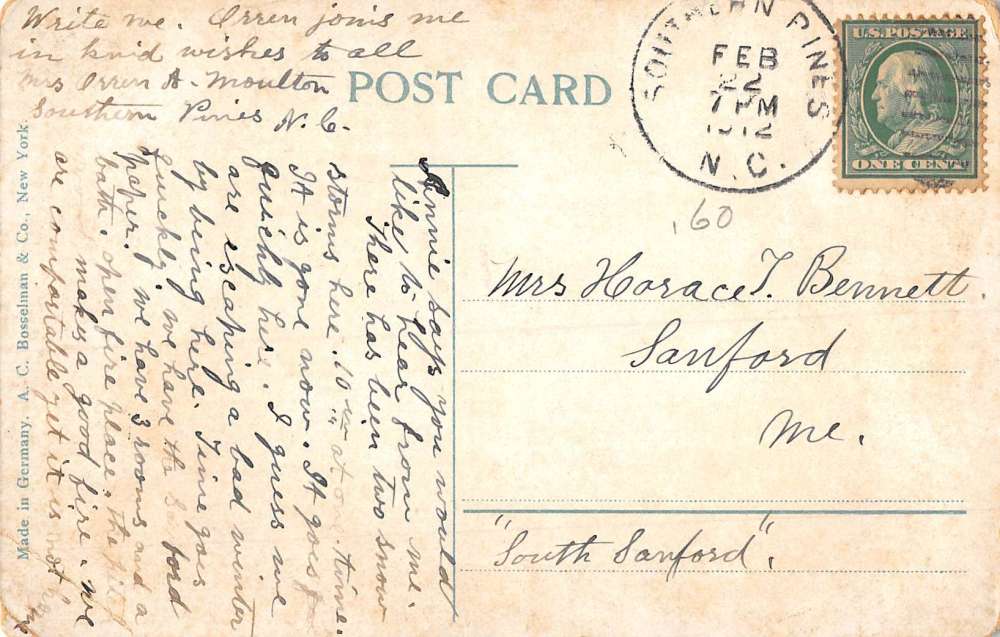 Write me. Orren joins me
in kind wishes to all
Mrs Orren A. Moulton
Southern Pines N.C.
POST CARD
SOUTHERN PINES
FEB
22
7 PM
1912
N.C.
U.S. POSTAGE
ONE CENT
.60
Mrs Horace T. Bennett.
Sanford
Me.
"South Sanford".
Annie says you would
like to hear from me.
There has been two snow
storms here. 10 in at one time.
It is gone now. It goes
quickly here. I guess we
are escaping a bad winter
by being here. Time goes
quickly. we have the ford
paper. we have 3 rooms and a
bath. open fire place. the
makes a good fire. we
are comfortable yet it is not
Made in Germany. A. C. Bosselman & Co., New York.